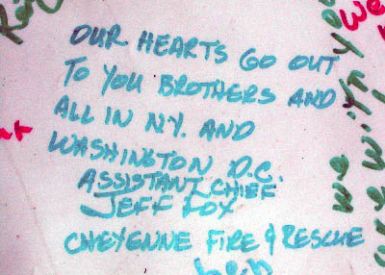 OUR HEARTS GO OUT
TO YOU BROTHERS AND
ALL IN N.Y. AND
WASHINGTON D.C.
ASSISTANT CHIEF
JEFF FOX
CHEYENNE FIRE & RESCUE